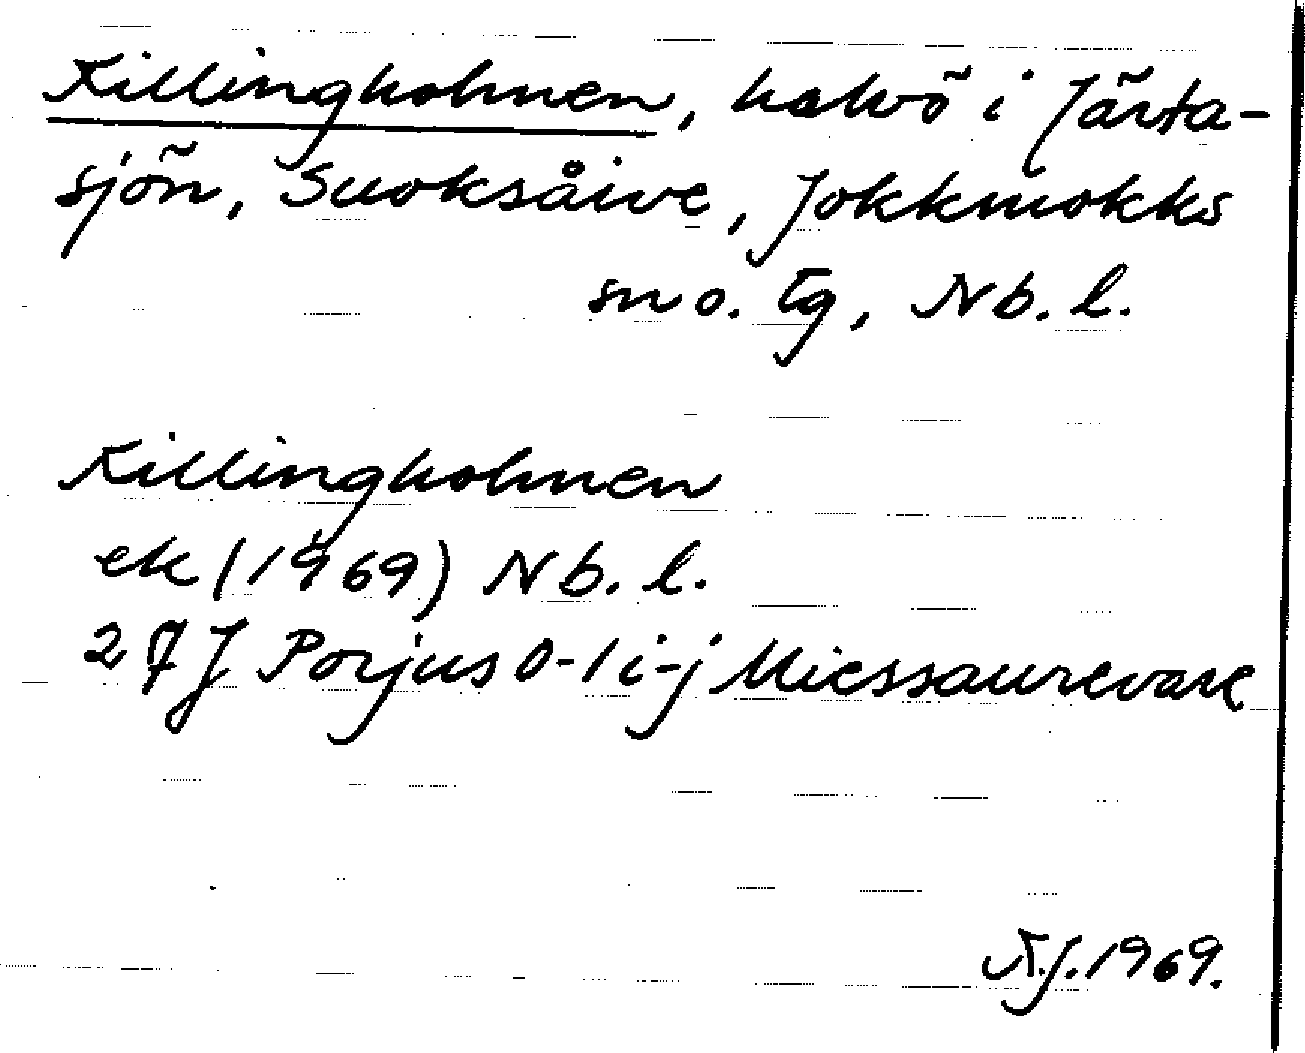 Killingholmen, halvö i Järta-
sjön, Suoksåive, Jokkmokks
sn o. tg, Nb. l.
Killingholmen
ek (1969) Nb. l.
27J Porjus 0-1 i-j Miessaurevare
N.J. 1969.